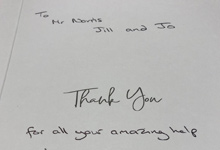 To
Mr Norris
Jill and Jo
Thank You
for all your amazing help